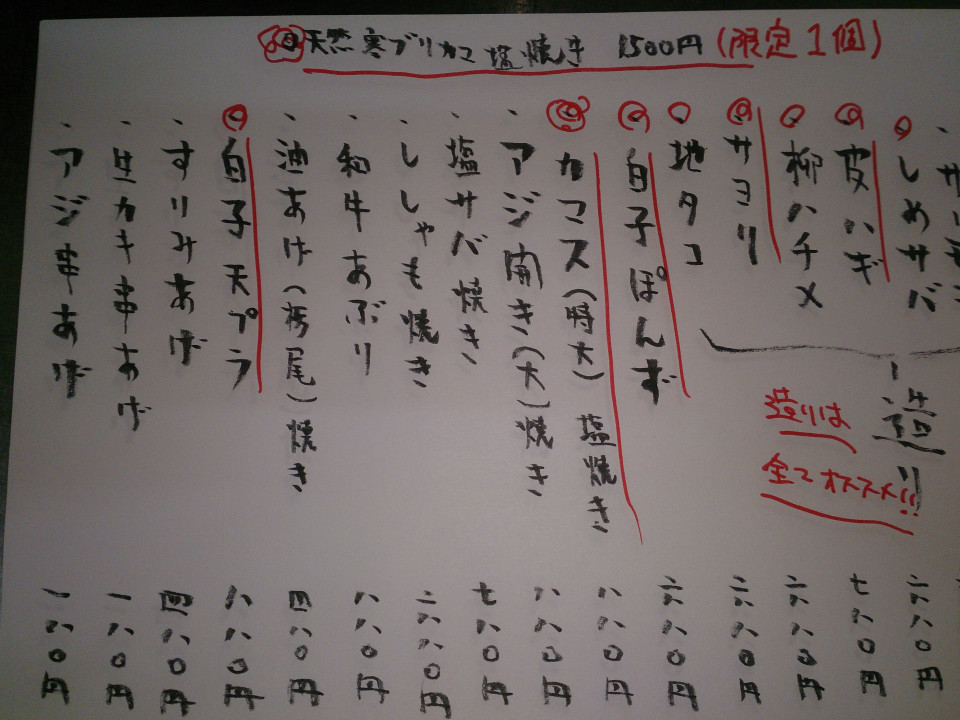 天然寒ブリカマ塩焼き 1500円(限定1個)
しめサバ
皮ハギ 六八〇円
柳ハチメ 七八〇円
サヨリ 六八〇円
地タコ 六八〇円
造り
造りは
全てオススメ!!
白子ぽんず 六八〇円
カマス(特大)塩焼き 八八〇円
アジ開き(大)焼き 八八〇円
塩サバ焼き 七八〇円
ししゃも焼き 六八〇円
和牛あぶり 八八〇円
油あげ(栃尾)焼き 四八〇円
白子天プラ 八八〇円
すりみあげ 四八〇円
生カキ串あげ 一八〇円
アジ串あげ 一八〇円